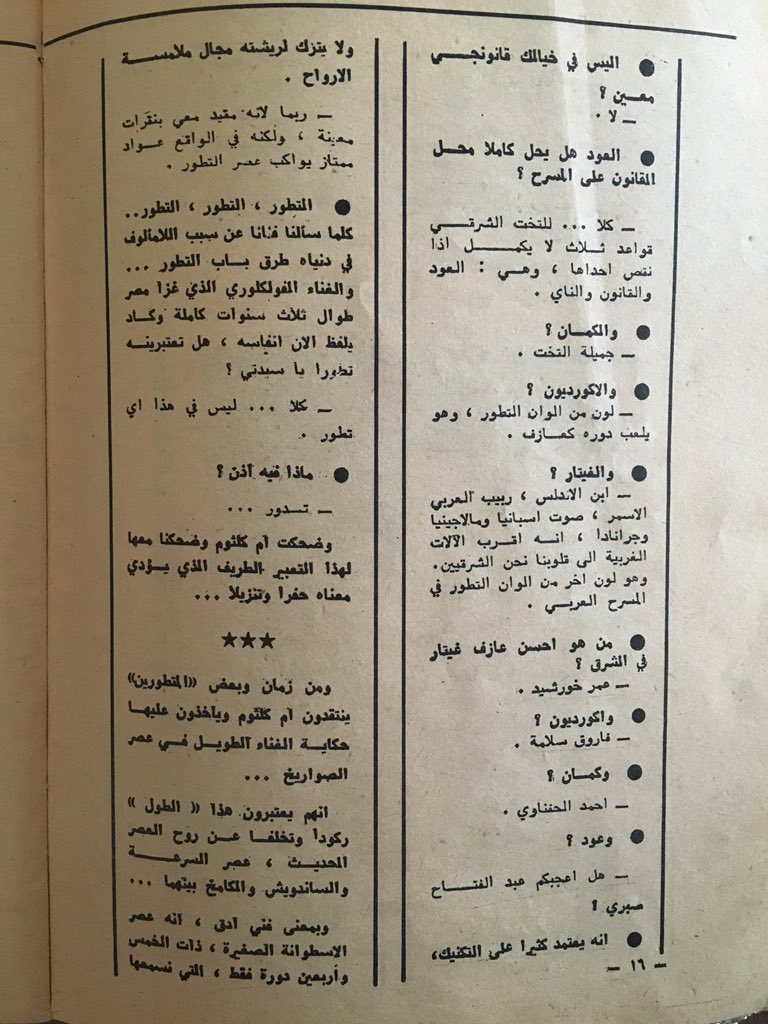 ● اليس في خيالك قانونجي
معين ؟
ـ لا .
● العود هل يحل كاملا محل
القانون على المسرح ؟
ـ كلا ... للتخت الشرقي
قواعد ثلاث لا يكمل اذا
نقص احداها ، وهي : العود
والقانون والناي .
● والكمان ؟
ـ جميلة التخت .
● والاكورديون ؟
ـ لون من الوان التطور ، وهو
يلعب دوره كعازف .
● والغيتار ؟
ـ ابن الاندلس ، ربيب العربي
الاسمر ، صوت اسبانيا ومالاجينيا
وجرانادا ، انه اقرب الآلات
الغربية الى قلوبنا نحن الشرقيين.
وهو لون اخر من الوان التطور في
المسرح العربي .
● من هو احسن عازف غيتار
في الشرق ؟
ـ عمر خورشيد .
● واكورديون ؟
ـ فاروق سلامة .
● وكمان ؟
ـ احمد الحفناوي .
● وعود ؟
ـ هل اعجبكم عبد الفتاح
صبري ؟
● انه يعتمد كثيرا على التكنيك،
ـ ١٦ ـ
ولا يترك لريشته مجال ملامسة
الارواح .
ـ ربما لانه مقيد معي بنقرات
معينة ، ولكنه في الواقع عواد
ممتاز يواكب عصر التطور .
● التطور ، التطور ، التطور..
كلما سألنا فنانا عن سبب اللامألوف
في دنياه طرق باب التطور ...
والغناء الفولكلوري الذي غزا مصر
طوال ثلاث سنوات كاملة وكاد
يلفظ الان انفاسه ، هل تعتبرينه
تطورا يا سيدتي ؟
ـ كلا ... ليس في هذا اي
تطور .
● ماذا فيه اذن ؟
ـ تدور ...
وضحكت ام كلثوم وضحكنا معها
لهذا التعبير الطريف الذي يؤدي
معناه حفرا وتنزيلا ...
★★★
ومن زمان وبعض «المتطورين»
ينتقدون ام كلثوم ويأخذون عليها
حكاية الغناء الطويل في عصر
الصواريخ ...
انهم يعتبرون هذا « الطول »
ركودا وتخلفا عن روح العصر
الحديث ، عصر السرعة
والساندويش والكامخ بينهما ...
وبمعنى فني ادق ، انه عصر
الاسطوانة الصغيرة ، ذات الخمس
وأربعين دورة فقط ، التي نسمعها